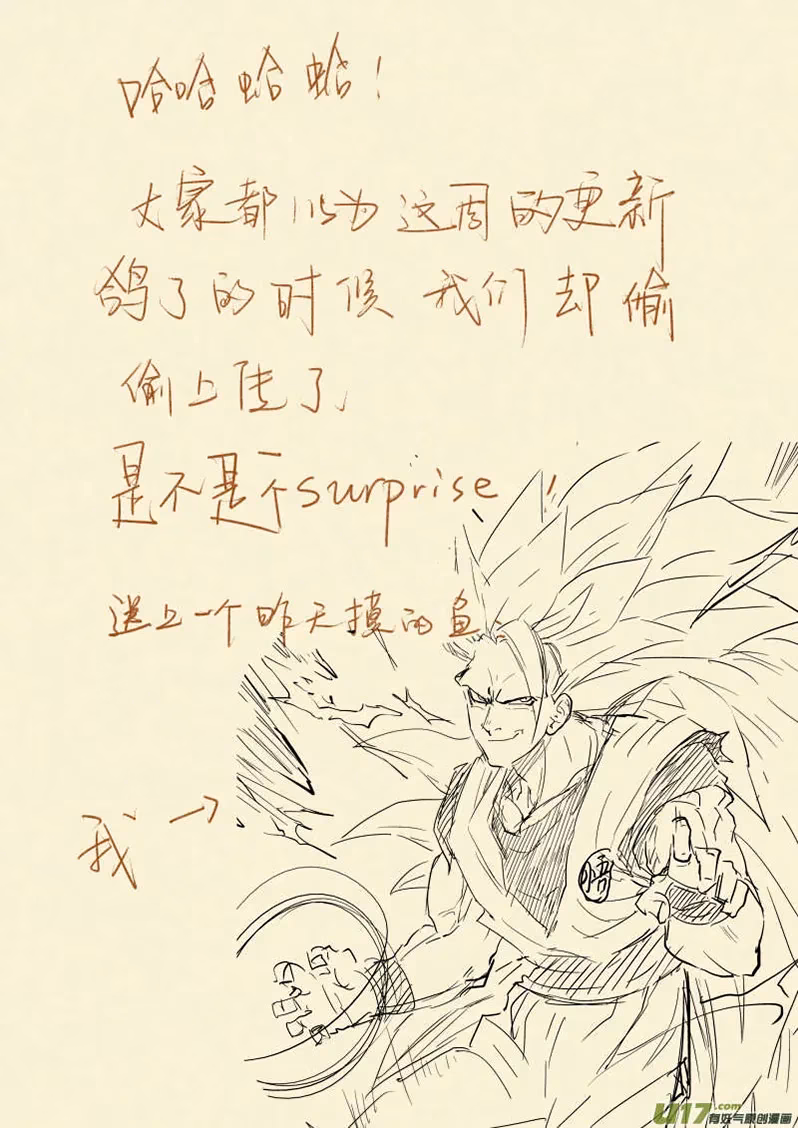 哈哈蛤蛤!
大家都以为这周的更新
鸽了的时候我们却偷
偷上传了
是不是个surprise!
送上一个昨天摸的鱼.
我→
悟
U17.com
有妖气原创漫画